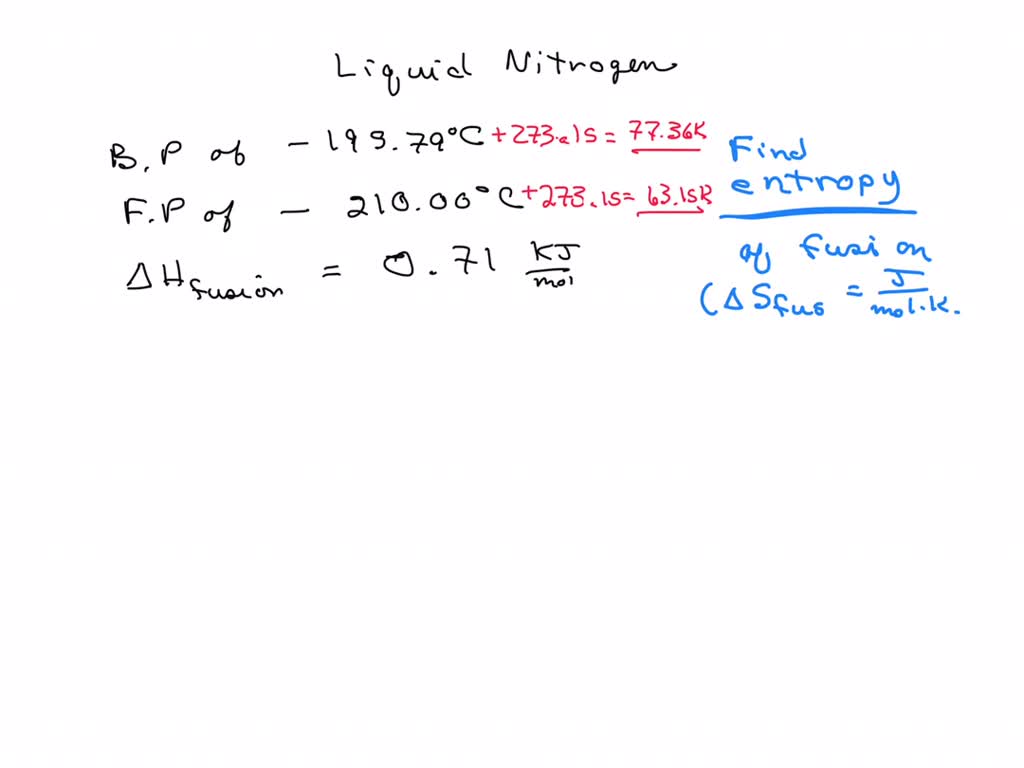 Liquid Nitrogen
B.P of - 195.79°C + 273.15 = 77.36K
F.P of - 210.00°C + 273.15 = 63.15K
ΔHfusion = 0.71 KJ/mol
Find
entropy
of fusion
(ΔSfus = J/mol.K.